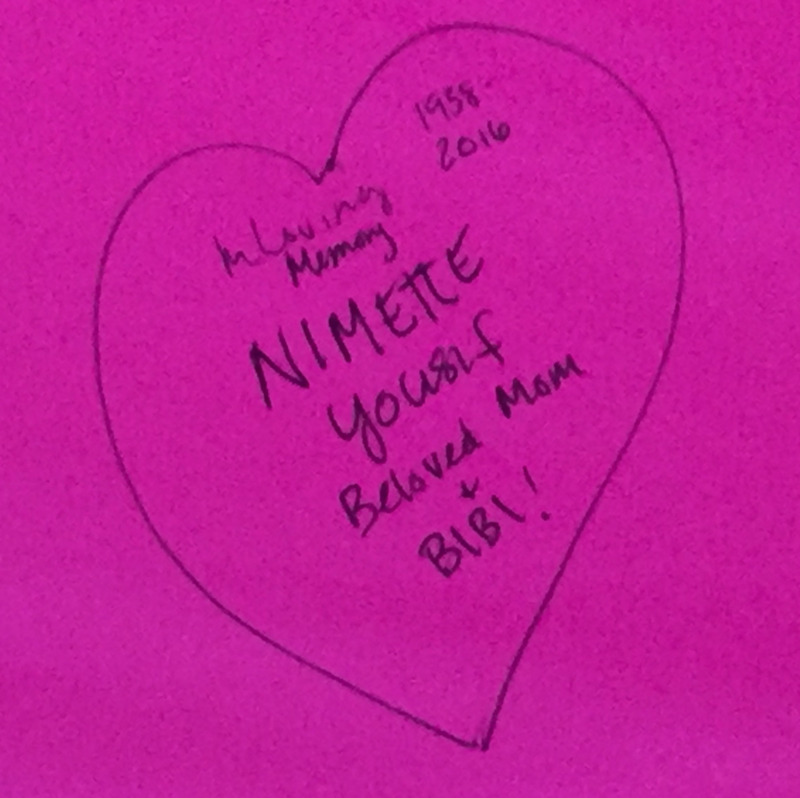 1958
2016
In Loving
Memory
NIMETTE
Yousif
Beloved Mom
+
BIBI!